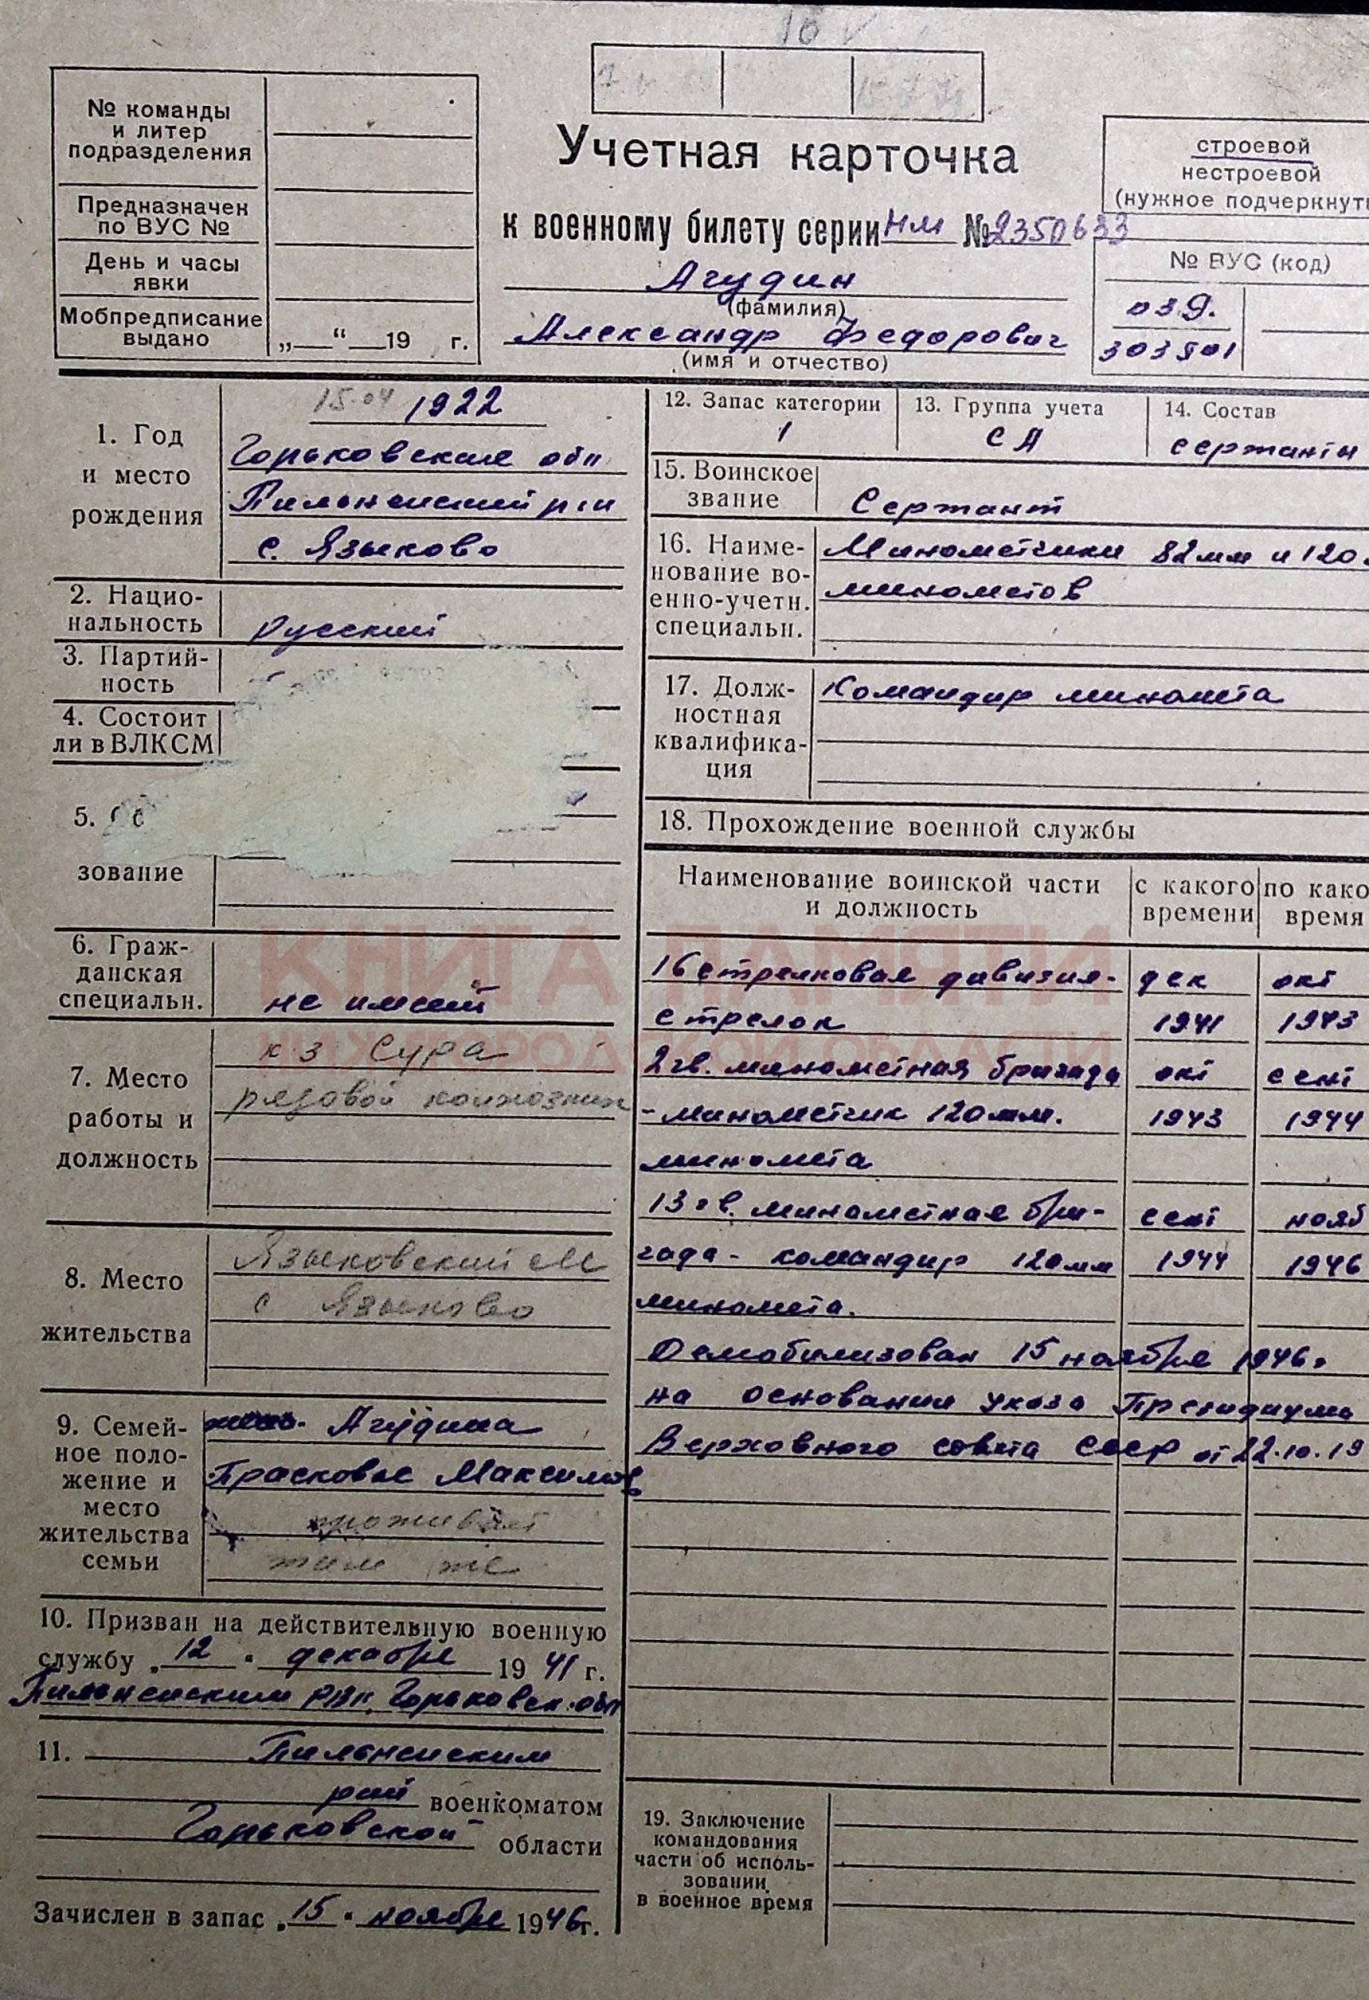 16 v
№ команды
и литер
подразделения
Предназначен
по ВУС №
День и часы
явки
Мобпредписание
выдано
„ “ 19 г.
Учетная карточка
к военному билету серии НМ № 2350633
Агудин
(фамилия)
Александр Федорович
(имя и отчество)
строевой
нестроевой
(нужное подчеркнуть
№ ВУС (код)
039.
303501
1. Год
и место
рождения
15.04 1922
Горьковская обл
Пильненский р-н
с. Языково
2. Нацио-
нальность
русский
3. Партий-
ность
4. Состоит
ли в ВЛКСМ
5.
зование
6. Граж-
данская
специальн.
не имеет
7. Место
работы и
должность
к з Сура
рядовой колхозник
8. Место
жительства
Языковский
с Языково
9. Семей-
ное поло-
жение и
место
жительства
семьи
Агудина
Прасковья Максимов
проживает
там же
10. Призван на действительную военную
службу „12“ декабря 1941 г.
Пильненским РВК, Горьковск. обл
11. Пильненским
рай военкоматом
Горьковской области
Зачислен в запас „15“ ноября 1946г.
12. Запас категории
1
13. Группа учета
СА
14. Состав
сержанты
15. Воинское
звание
Сержант
16. Наиме-
нование во-
енно-учетн.
специальн.
Минометчики 82мм и 120
минометов
17. Долж-
ностная
квалифика-
ция
Командир миномета
18. Прохождение военной службы
Наименование воинской части
и должность
с какого
времени
по како
время
16 стрелковая дивизия- дек окт
стрелок 1941 1943
2 гв. минометная бригада окт сент
-минометчик 120мм. 1943 1944
миномета
13 гв. минометная бри- сент нояб
гада - командир 120мм 1944 1946
миномета.
Демобилизован 15 ноября 1946г
на основании указа Президиума
Верховного совета СССР от 22.10.19
19. Заключение
командования
части об исполь-
зовании
в военное время
КНИГА ПАМЯТИ
НИЖЕГОРОДСКОЙ ОБЛАСТИ